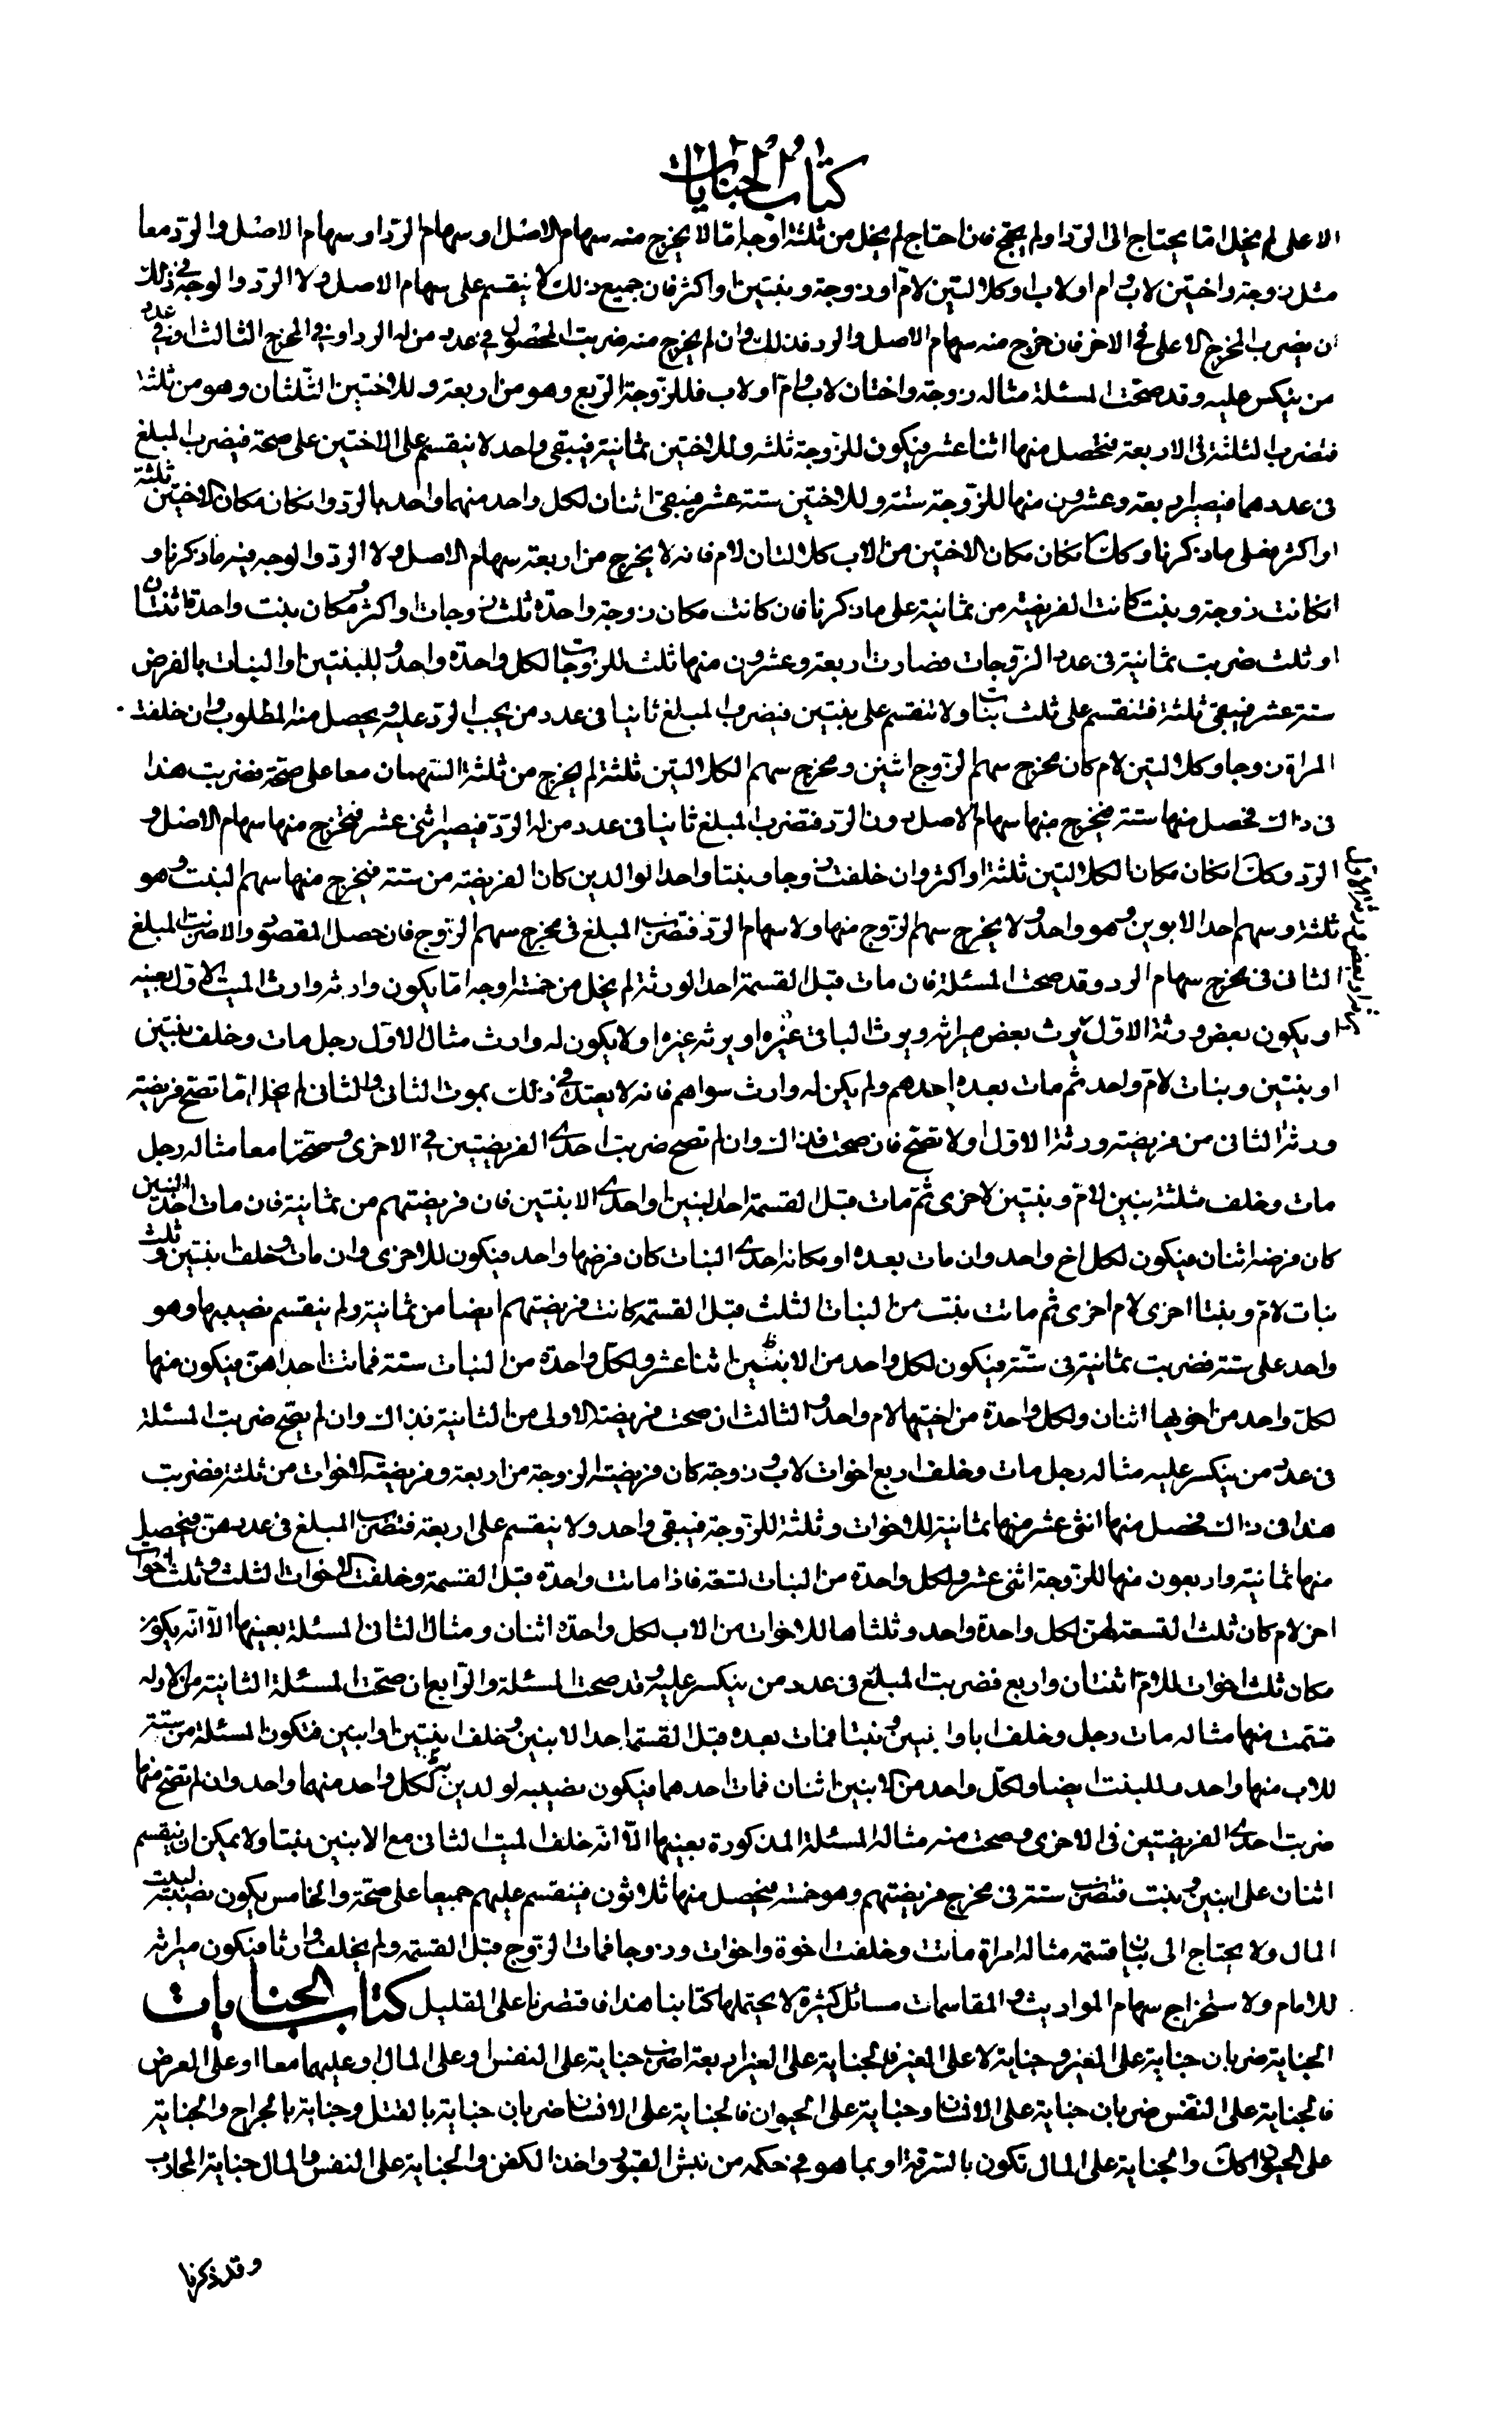 كتاب الجنايات
الاعلى لم يخل اما يحتاج الى الرد او لم يحتج فان احتاج لم يخل من ثلثة اوجه اما لا يخرج منه سهام الاصل او سهام الرد او سهام الاصل والرد معا
مثل زوجة واختين لاب وام او لاب او كلالتين لام او زوجة وبنتين او اكثر فان جميع ذلك لا ينقسم على سهام الاصل ولا الرد والوجه في ذلك
ان يضرب المخرج الاعلى في الاخر فان خرج منه سهام الاصل والرد فذلك وان لم يخرج منه ضربت المحصول في عدد من له الرد او في المخرج الثالث او في عدد
من ينكسر عليه وقد صحت المسئلة مثاله زوجة واختان لاب وام او لاب فللزوجة الربع وهو من اربعة وللاختين الثلثان وهو من ثلثة
فتضرب الثلثة في الاربعة فتحصل منها اثنا عشر فيكون للزوجة ثلثه وللاختين ثمانية فيبقى واحد لا ينقسم على الاختين على صحة فيضرب المبلغ
في عددهما فيصير اربعة وعشرين منها للزوجة ستة وللاختين ستة عشر فيبقى اثنان لكل واحد منهما واحد بالرد وان كان مكان الاختين ثلثة
او اكثر فعلى ما ذكرنا وكذا ان كان مكان الاختين من الاب كلالتان لام فانه لا يخرج من اربعة سهام الاصل ولا الرد والوجه فيه ما ذكرنا و
ان كانت زوجة وبنت كانت الفريضة من ثمانية على ما ذكرنا فان كانت مكان زوجة واحدة ثلث زوجات او اكثر ومكان بنت واحدة اثنتان
او ثلث ضربت ثمانية في عدد الزوجات فصارت اربعة وعشرون منها ثلث للزوجات لكل واحدة واحد وللبنتين او البنات بالفرض
ستة عشر فيبقى ثلثة فتنقسم على ثلث بنات ولا تنقسم على بنتين فيضرب المبلغ ثانيا في عدد من يجب الرد عليه ويحصل منه المطلوب وان خلفت
المراة زوجا وكلالتين لام كان مخرج سهم الزوج اثنين ومخرج سهم الكلالتين ثلثة لم يخرج من ثلثة السهمان معا على صحة فضربت هذا
في ذاك فحصل منها ستة فيخرج منها سهام الاصل دون الرد فتضرب المبلغ ثانيا في عدد من له الرد فيصير اثنى عشر فيخرج منها سهام الاصل و
الرد وكذا ان كان مكان الكلالتين ثلثة او اكثر وان خلفت زوجا وبنتا واحد الوالدين كان الفريضه من ستة فيخرج منها سهم البنت وهو
ثلثة وسهم احد الابوين وهو واحد ولا يخرج سهم الزوج منها ولا سهام الرد فتضرب المبلغ في مخرج سهم الزوج فان حصل المقصود والا ضربت المبلغ
الثاني في مخرج سهام الرد وقد صحت المسئلة فان مات قبل القسمة احد الورثة لم يخل من خمسة اوجه اما يكون وارثه وارث الميت الاول بعينه
او يكون بعض ورثة الاول يرث بعض ميراثه ويرث الباقي غيره او يرثه غيره او لا يكون له وارث مثال الاول رجل مات وخلف بنتين
او بنتين وبنات لام واحد ثم مات بعده احدهم ولم يكن له وارث سواهم فانه لا يعتد في ذلك بموت الثاني والثاني لم يخل اما تصح فريضة
ورثة الثاني من فريضة ورثة الاول او لا تصح فان صحت فذاك وان لم تصح ضربت احدى الفريضتين في الاخرى وصحتا معا مثاله رجل
مات وخلف ثلثة بنين لام وبنتين لاخرى ثم مات قبل القسمة احد البنين او احدى الابنتين فان فريضتهم من ثمانية فان مات احد البنين
كان فرضه اثنان فيكون لكل اخ واحد وان مات بعده او مكانه احدى البنات كان فرضها واحد فيكون للاخرى وان مات وخلف بنتين وثلث
بنات لام وبنتا اخرى لام اخرى ثم ماتت بنت من البنات الثلث قبل القسمة كانت فريضتهم ايضا من ثمانية ولم ينقسم نصيبها وهو
واحد على ستة فضربت ثمانية في ستة فيكون لكل واحد من الابنين اثنا عشر ولكل واحدة من البنات ستة فماتت احداهن فيكون منها
لكل واحد من اخويها اثنان ولكل واحدة من اختيها لام واحد والثالث ان صحت فريضة الاولى من الثانية فذاك وان لم يصح ضربت المسئلة
في عدد من ينكسر عليه مثاله رجل مات وخلف اربع اخوات لاب وزوجة كان فريضة الزوجة من اربعة وفريضة الاخوات من ثلثة فضربت
هذا في ذاك فحصل منها اثنى عشر منها ثمانية للاخوات وثلثة للزوجة فيبقى واحد ولا ينقسم على اربعة فتضرب المبلغ في عددهن فيحصل
منها ثمانية واربعون منها للزوجة اثنى عشر ولكل واحدة من البنات تسعه فاذا ماتت واحدة قبل القسمة وخلفت الاخوات الثلث وثلث اخوات
اخر لام كان ثلث التسعة لهن لكل واحدة واحد وثلثاها للاخوات من الاب لكل واحدة اثنان ومثال الثاني المسئلة بعينها الا انه يكون
مكان ثلث اخوات للام اثنتان واربع فضربت المبلغ في عدد من ينكسر عليه وقد صحت المسئلة والرابع ان صحت المسئلة الثانية من الاوله
قسمت منها مثاله مات رجل وخلف ابا وابنين وبنتا فمات بعده قبل القسمة احد الابنين وخلف بنتين او ابنين فتكون المسئلة من ستة
للاب منها واحد وللبنت ايضا ولكل واحد من الابنين اثنان فمات احدهما فيكون نصيبه لولدين لكل واحد منهما واحد وان لم تصح منها
ضربت احدى الفريضتين في الاخرى وصحت منه مثاله المسئلة المذكورة بعينها الا انه خلف الميت الثاني مع الابنين بنتا ولا يمكن ان ينقسم
اثنان على ابنين وبنت فتضرب ستة في مخرج فريضتهم وهو خمسة فيحصل منها ثلاثون فينقسم عليهم جميعا على صحة والخامس يكون نصيبه لبيت
المال ولا يحتاج الى بيان قسمته مثاله امراة ماتت وخلفت اخوة واخوات وزوجا فمات الزوج قبل القسمة ولم يخلف وارثا فيكون ميراثه
للامام ولاستخراج سهام المواريث والمقاسمات مسائل كثيرة لا يحتملها كتابنا هذا فاقتصرنا على القليل كتاب الجنايات
الجناية ضربان جناية على الغير وجناية لا على الغير فالجناية على الغير اربعة اضرب جناية على النفس او على المال او عليهما معا او على العرض
فالجناية على النفس ضربان جناية على الانسان وجناية على الحيوان فالجناية على الانسان ضربان جناية بالقتل وجناية بالجراح والجناية
على الحيوان كذلك والجناية على المال تكون بالسرقة او بما هو في حكمه من نبش القبور واخذ الكفن والجناية على النفس والمال جناية المحارب
وقد ذكرنا